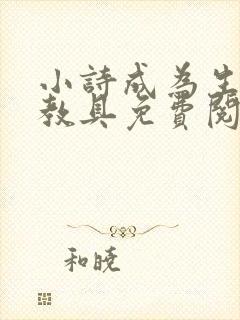 小詩成為生
教具免費閱
和曉